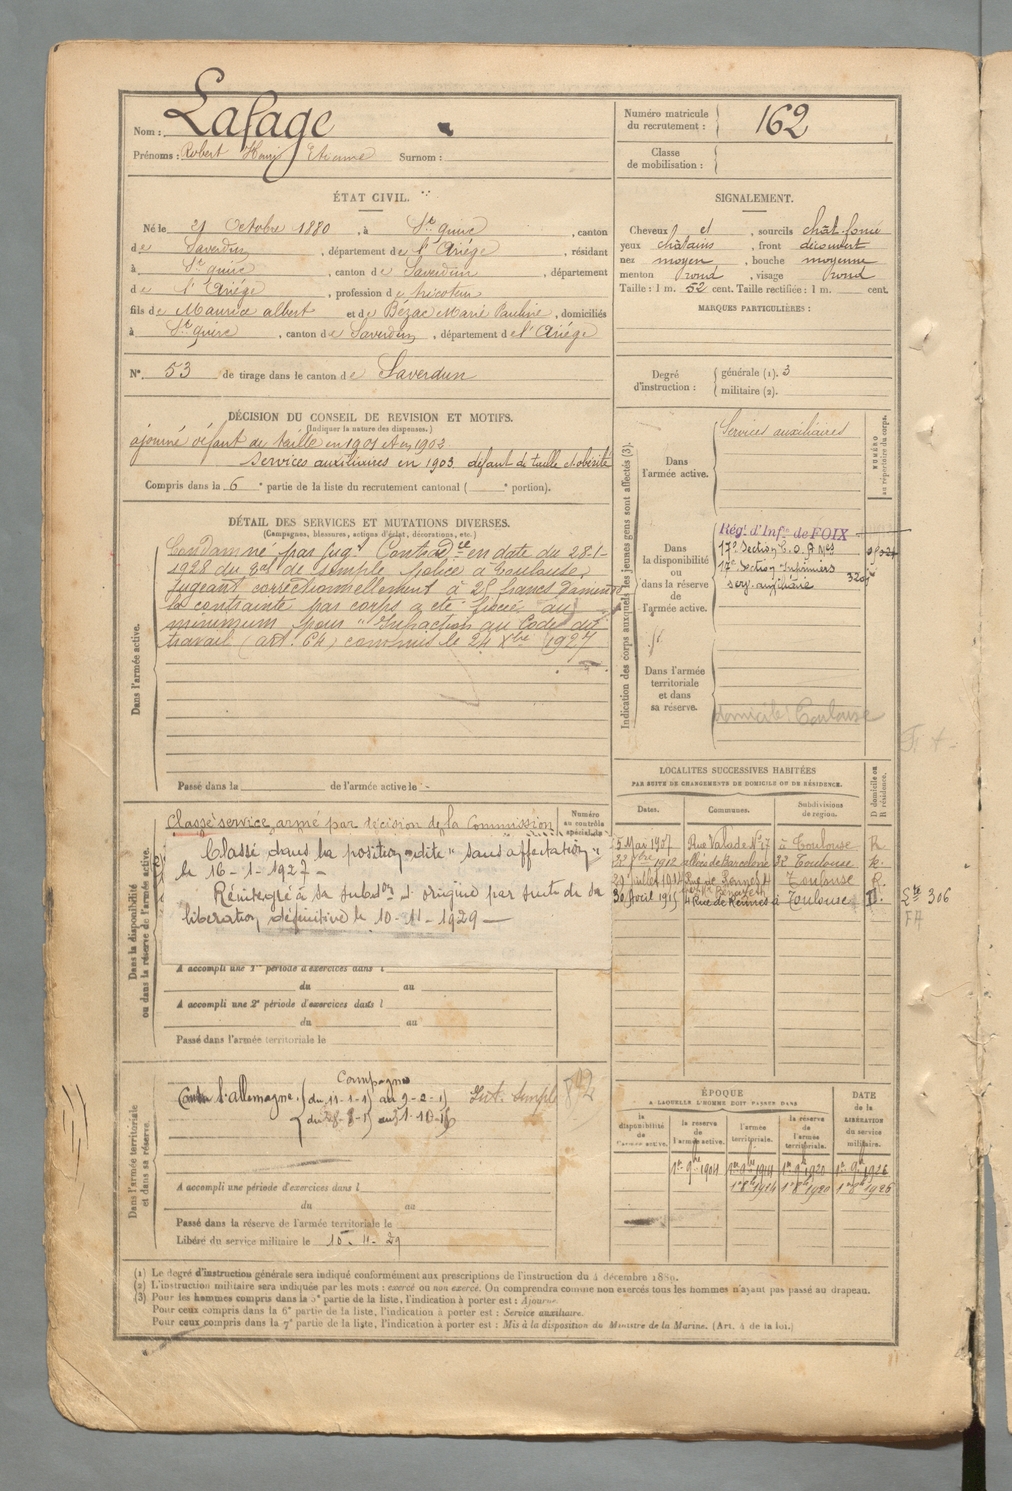 Nom : Lafage
Prénoms : Robert Henri Etienne Surnom :
Numéro matricule du recrutement : 162
Classe de mobilisation :
ÉTAT CIVIL.
Né le 21 Octobre 1880, à Ste quirc, canton
de Saverdun, département de l'Ariége, résidant
à Ste quirc, canton de Saverdun, département
de l'Ariége, profession de tricoteur
fils de Maurice albert et de Bézac Marie Pauline, domiciliés
à Ste quirc, canton de Saverdun, département de l'Ariége
N° 53 de tirage dans le canton de Saverdun
SIGNALEMENT.
Cheveux et, sourcils chât. foncé
yeux châtains, front découvert
nez moyen, bouche moyenne
menton rond, visage rond
Taille : 1 m. 52 cent. Taille rectifiée : 1 m. cent.
MARQUES PARTICULIÈRES :
Degré d'instruction : générale (1). 3
militaire (2).
DÉCISION DU CONSEIL DE REVISION ET MOTIFS.
(Indiquer la nature des dispenses.)
ajourné défaut de taille en 1901 et en 1902
services auxiliaires en 1903 défaut de taille et obésité
Compris dans la 6e partie de la liste du recrutement cantonal ( e portion).
DÉTAIL DES SERVICES ET MUTATIONS DIVERSES.
(Campagnes, blessures, actions d'éclat, décorations, etc.)
Dans l'armée active.
Condamné par jugt Contradre en date du 28-1-
1928 du Bal de simple Police à Toulouse,
jugeant correctionnellement à 25 francs d'amende
la contrainte par corps a été fixée au
minimum pour "Infraction au Code du
travail (art. 64) commis le 24 Xbre 1927
Passé dans la de l'armée active le
Indication des corps auxquels les jeunes gens sont affectés (3).
NUMÉRO au répertoire du corps.
Dans l'armée active.
Services auxiliaires
Dans la disponibilité ou dans la réserve de l'armée active.
Régt d'Infie de FOIX
17e Section C. O. A
17e Section Infirmiers
serv. auxiliaire
Dans l'armée territoriale et dans sa réserve.
domicilié Toulouse
LOCALITÉS SUCCESSIVES HABITÉES
PAR SUITE DE CHANGEMENTS DE DOMICILE OU DE RÉSIDENCE.
Dates. Communes. Subdivisions de région. D domicile ou R résidence.
5 Mars 1907 Rue Valade No 27 à Toulouse R.
1912 allées de Barcelone 32 Toulouse R.
Juillet 1914 Rue de Rennes 4 Toulouse R.
30 Avril 1915 4 Rue de Rennes à Toulouse D.
Ste 306
Dans la disponibilité ou dans la réserve de l'armée active.
Numéro au contrôle spécial
Classé service armé par décision de la Commission
Classé dans la position dite "sans affectation"
le 16-1-1927 -
Réintegré à sa subdon d'origine par suite de sa
libération définitive le 10-11-1929 -
A accompli une 1re période d'exercices dans l
du au
A accompli une 2e période d'exercices dans l
du au
Passé dans l'armée territoriale le
Dans l'armée territoriale et dans sa réserve.
Campagne
Contre l'allemagne
Int. Simple
A accompli une période d'exercices dans l
du au
Passé dans la réserve de l'armée territoriale le
Libéré du service militaire le 10-11-29
ÉPOQUE
A LAQUELLE L'HOMME DOIT PASSER DANS
la disponibilité de l'armée active. la réserve de l'armée active. l'armée territoriale. la réserve de l'armée territoriale.
DATE de la LIBÉRATION du service militaire.
1er 9bre 1904 1er 9bre 1914 1er 9bre 1920 1er 9bre 1926
1er 8bre 1914 1er 8bre 1920 1er 8bre 1926
(1) Le degré d'instruction générale sera indiqué conformément aux prescriptions de l'instruction du 4 décembre 1889.
(2) L'instruction militaire sera indiquée par les mots : exercé ou non exercé. On comprendra comme non exercés tous les hommes n'ayant pas passé au drapeau.
(3) Pour les hommes compris dans la 5e partie de la liste, l'indication à porter est : Ajourné.
Pour ceux compris dans la 6e partie de la liste, l'indication à porter est : Service auxiliaire.
Pour ceux compris dans la 7e partie de la liste, l'indication à porter est : Mis à la disposition du Ministre de la Marine. (Art. 4 de la loi.)